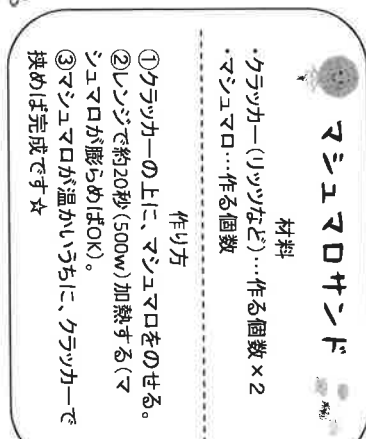 マシュマロサンド
材料
・クラッカー(リッツなど)…作る個数×2
・マシュマロ…作る個数
作り方
①クラッカーの上に、マシュマロをのせる。
②レンジで約20秒(500w)加熱する(マ
シュマロが膨らめばOK)。
③マシュマロが温かいうちに、クラッカーで
挟めば完成です☆